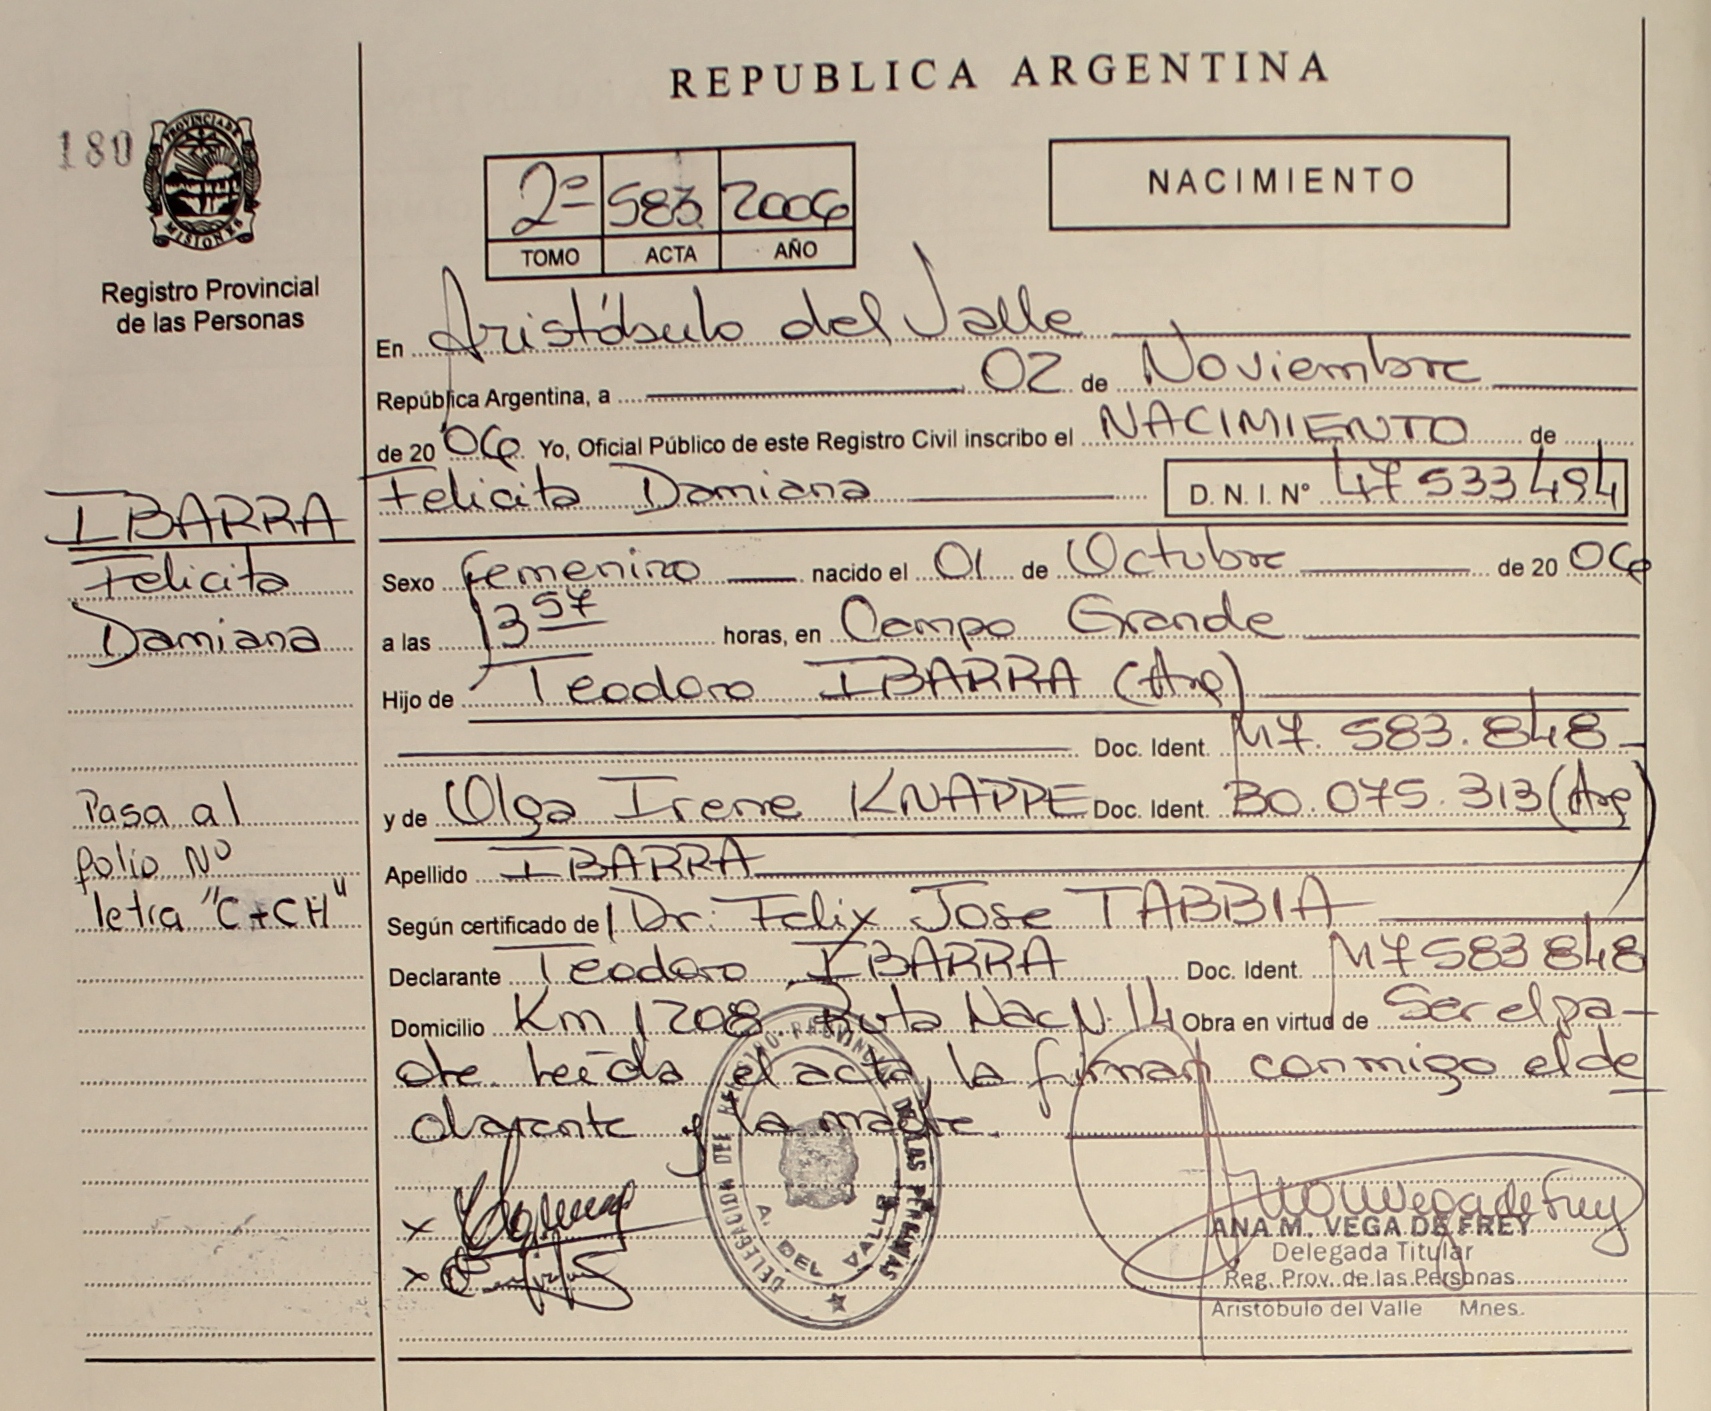 REPUBLICA ARGENTINA
180
PROVINCIA DE
MISIONES
Registro Provincial
de las Personas
2º 583 2006
TOMO ACTA AÑO
NACIMIENTO
En Aristóbulo del Valle
República Argentina, a 02 de Noviembre
de 2006 Yo, Oficial Público de este Registro Civil inscribo el NACIMIENTO de
Felicita Damiana D. N. I. Nº 47533494
IBARRA
Felicita
Damiana
Sexo femenino nacido el 01 de Octubre de 2006
a las 13 57 horas, en Campo Grande
Hijo de Teodoro IBARRA (Arg)
Doc. Ident. M7.583.848
y de Olga Irene KNAPPE Doc. Ident. 30.075.313 (Arg)
Apellido IBARRA
Pasa al
folio Nº
letra "C+CH"
Según certificado de Dr: Felix Jose TABBIA
Declarante Teodoro IBARRA Doc. Ident. M7583848
Domicilio Km 1208 Ruta Nac N. 14 Obra en virtud de Ser el pa-
dre. Leída el acta, la firman conmigo el de
clarante y la madre.
DELEGACION DEL REGISTRO PROVINCIAL DE LAS PERSONAS
A. DEL VALLE
x
x
ANA M. VEGA DE FREY
Delegada Titular
Reg. Prov. de las Personas
Aristóbulo del Valle Mnes.